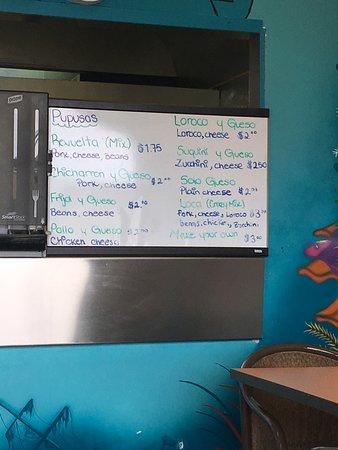 Pupusas
Revuelta (Mix) $1.75
Pork, cheese, beans
Chicharron y Queso
Pork, cheese $2.00
Frijol y Queso
Beans, cheese $2.00
Pollo y Queso $2.00
Chicken cheese
Loroco y Queso
Loroco, cheese $2.00
Suquini y Queso
Zucchini, cheese $2.50
Solo Queso
Plain cheese $2.00
Loca (Crazy Mix)
Pork, cheese, Loroco $3.00
beans, chicken, Zucchini
Make your own $3.00